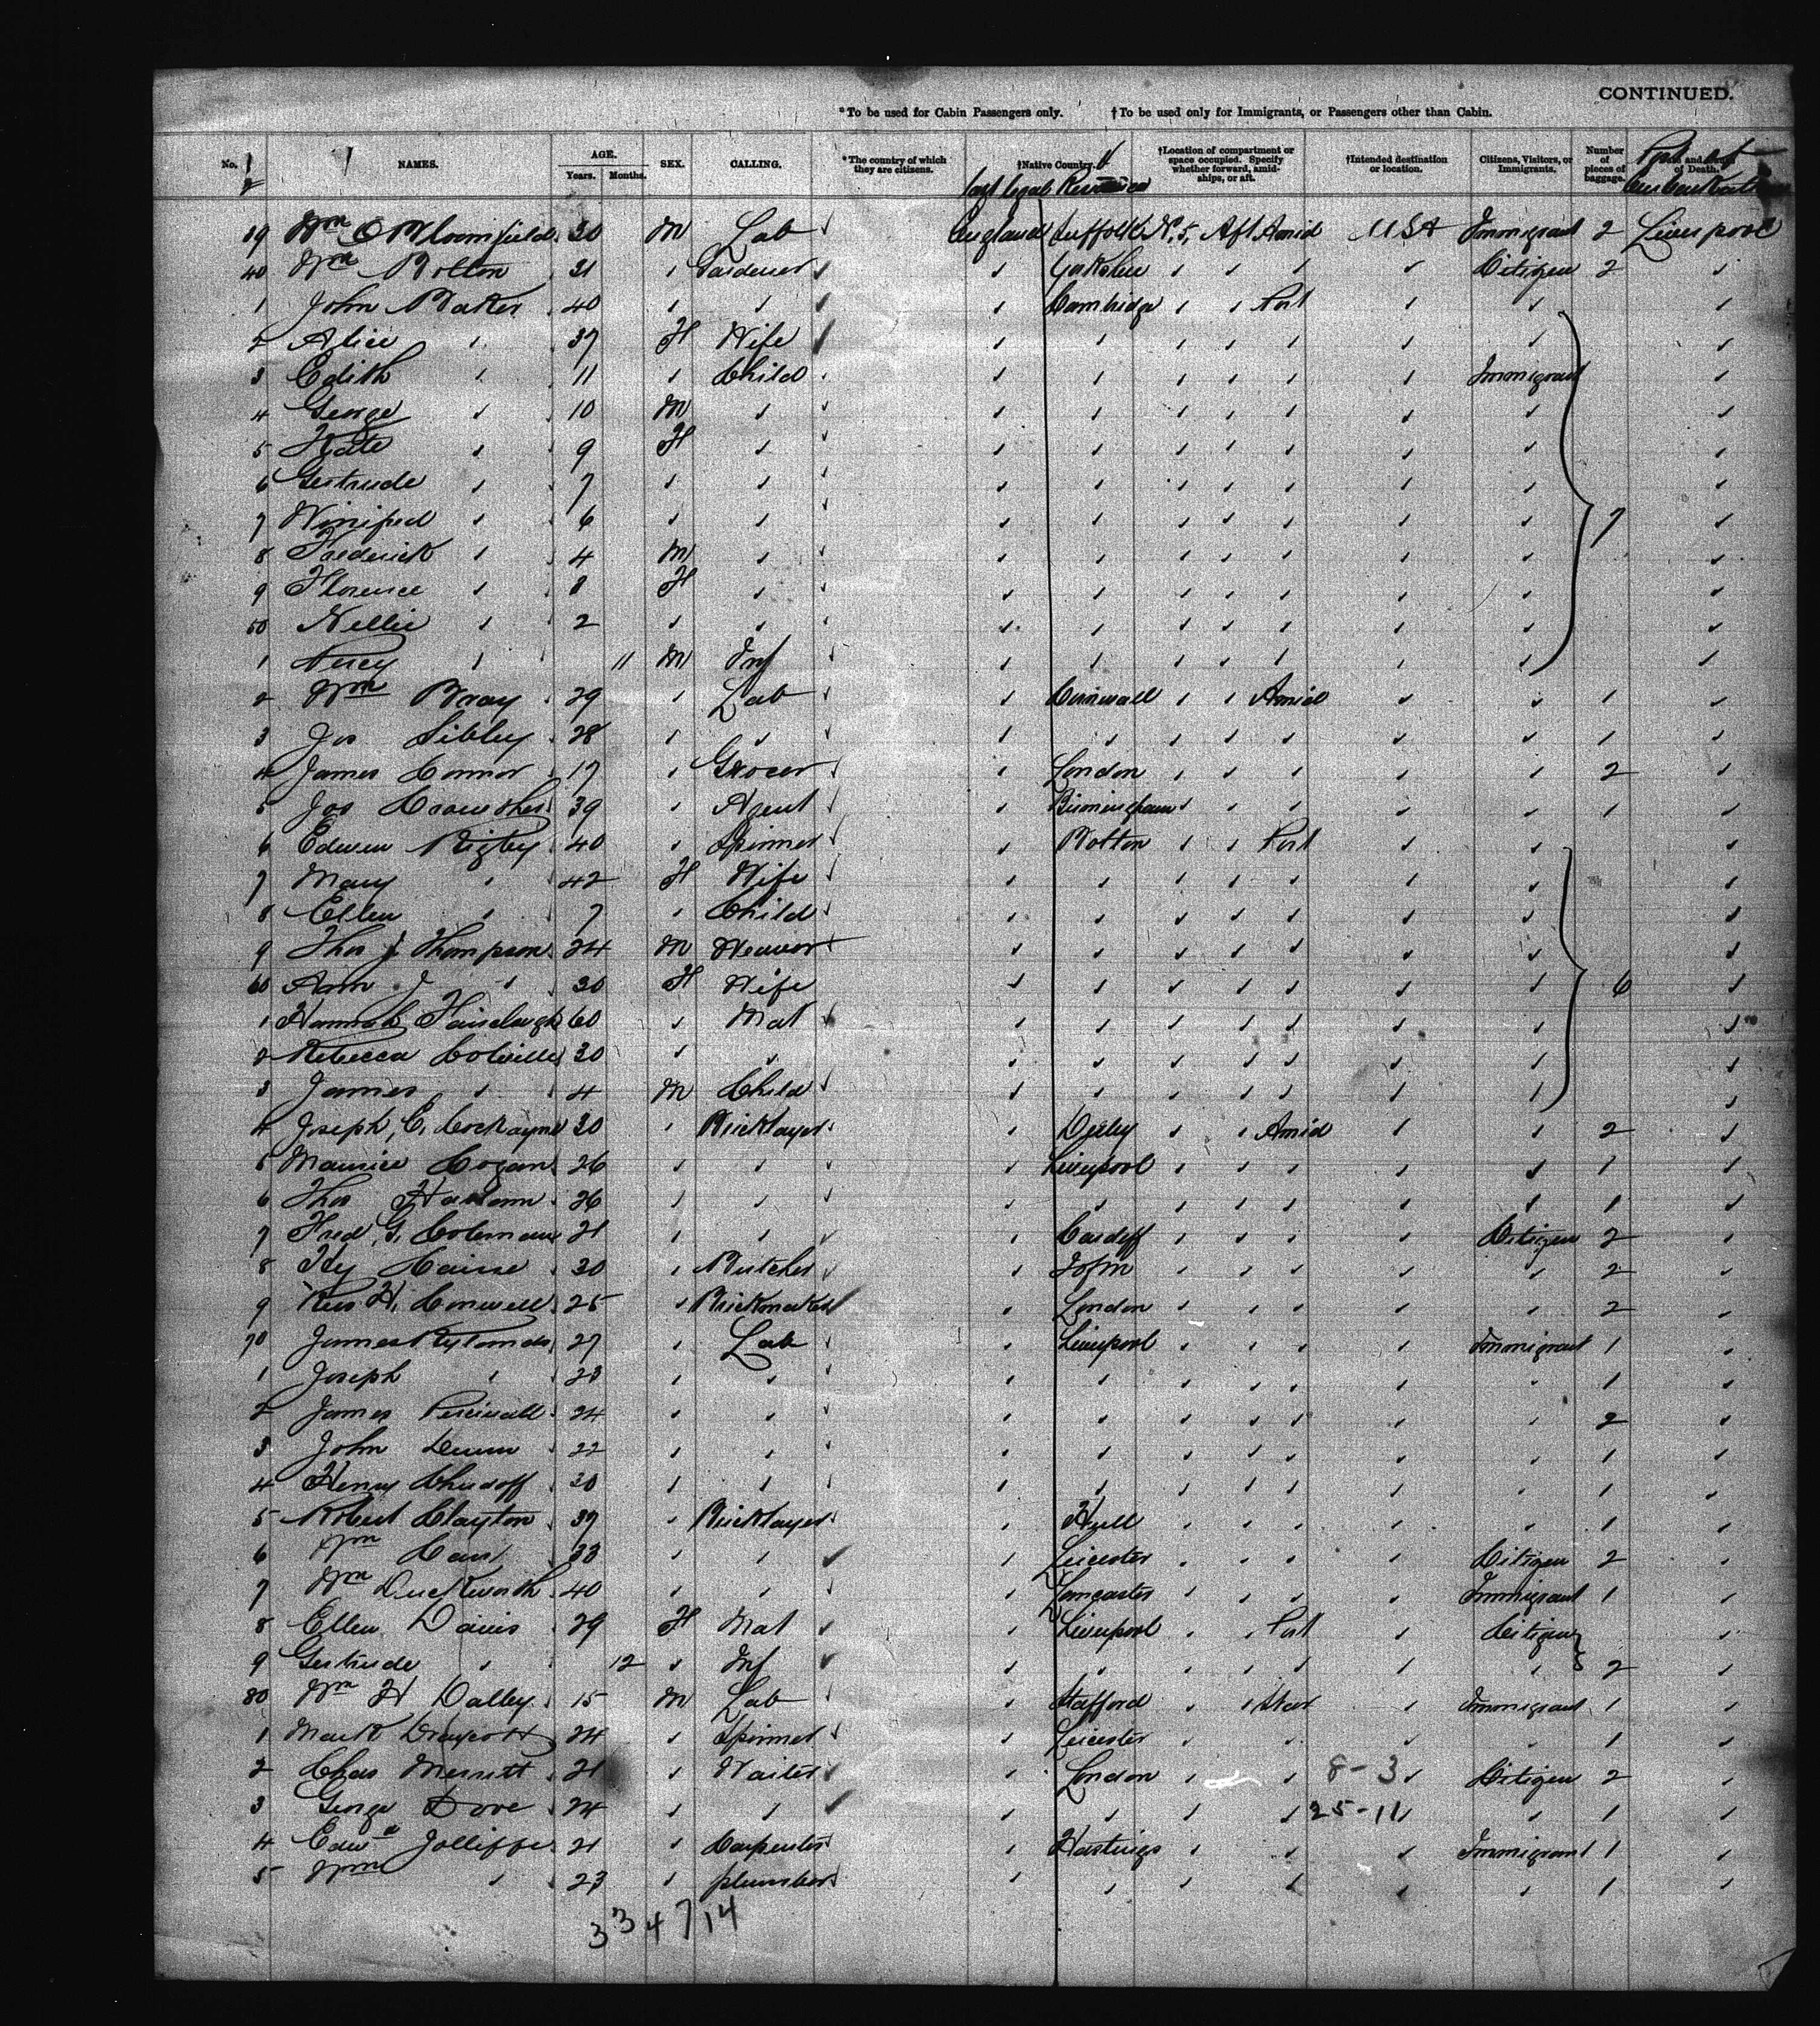 CONTINUED.
*To be used for Cabin Passengers only. †To be used only for Immigrants, or Passengers other than Cabin.
No. NAMES. AGE. Years. Months. SEX. CALLING. *The country of which they are citizens. †Native Country. †Location of compartment or space occupied. Specify whether forward, amidships, or aft. †Intended destination or location. Citizens, Visitors, or Immigrants. Number of pieces of baggage. of Death.
Wm Bloomfield 30 M Lab England Suffolk Aft Amid USA Immigrant 2 Liverpool
40 Wm Bolton 31 Gardener Yorkshire Citizen 2
1 John Baker 40 Cambridge Port
2 Alice 37 F Wife
3 Edith 11 Child Immigrant
4 George 10 M
5 Kate 9 F
6 Gertrude 7
7 Winifred 6 7
8 Frederick 4 M
9 Florence F
50 Nellie 2
1 Percy 11 M Inf
2 Wm Bray 29 Lab Cornwall Amid 1
3 Jos Sibley 28 1
4 James Connor 17 Grocer London 2
5 Jos 39 Agent Birmingham 1
6 Edwin Rigby 40 Spinner Bolton Port
7 Mary 42 F Wife
8 Ellen 7 Child
9 Thos J Thompson 24 M Weaver
60 Ann J 30 F Wife 6
1 Hannah Fairclough 60 Mat
2 Rebecca Colville 30
3 James 4 M Child
4 Joseph C. Cockayne 30 Bricklayer Derby Amid 2
5 Maurice Cogan 26 Liverpool 1
6 Thos 26 1
7 Fred G. Coleman 21 Cardiff Citizen 2
8 Hy 30 Butcher 2
9 H. Conwell 25 Brickmaker London 2
70 James Rylands 27 Lab Liverpool Immigrant 1
1 Joseph 23 1
2 James Percivall 24 2
3 John 22 1
4 Henry 30 1
5 Robert Clayton 37 Bricklayer Hull 1
6 Wm 33 Leicester Citizen 2
7 Wm Duckworth 40 Lancaster Immigrant 1
8 Ellen Davis 29 F Mat Liverpool Port Citizen
9 Gertrude 12 Inf 2
80 Wm H Dalley 15 M Lab Stafford Star Immigrant 1
1 Mark Draycott 24 Spinner Leicester 1
2 Chas Merritt 21 Waiter London 8-3 Citizen 2
3 George Dove 24 25-11 1
4 Edwd Jolliffe 21 Carpenter Hastings Immigrant 1
5 Wm 23 plumber 1
3 3 4 7 14